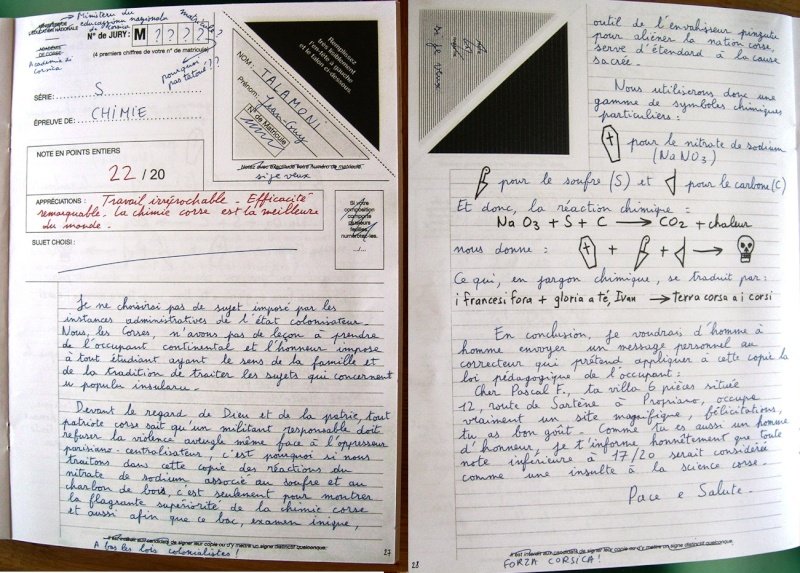 Ministeru du
educazioni naziunale
di Corsica
MINISTÈRE DE
L'ÉDUCATION NATIONALE
ACADÉMIE
DE CORSE
Academia di
corsica
N° de JURY: M ? ? ? ?
(4 premiers chiffres de votre n° de matricule)
matricule ??
pourquoi
pas tatoué ??
SÉRIE : S
ÉPREUVE DE : CHIMIE
NOM : TALAMONI
Prénom : Jean-Guy
N° de Matricule
Remplissez
très lisiblement
l'en-tête à gauche
et le talon ci-dessous.
si je veux
NOTE EN POINTS ENTIERS
22 / 20
APPRÉCIATIONS : Travail irréprochable - Efficacité
remarquable. La chimie corse est la meilleure
du monde.
Si votre
composition
comporte
plusieurs
feuilles,
numérotez-les.
.../...
SUJET CHOISI :
Je ne choisirai pas de sujet imposé par les
instances administratives de l'état colonisateur.
Nous, les Corses, n'avons pas de leçon à prendre
de l'occupant continental et l'honneur impose
à tout étudiant ayant le sens de la famille et
de la tradition de traiter les sujets qui concernent
u populu insularu.
Devant le regard de Dieu et de la patrie, tout
patriote corse sait qu'un militant responsable doit
refuser la violence aveugle même face à l'oppresseur
parisiano-centralisateur ; c'est pourquoi si nous
traitons dans cette copie des réactions du
nitrate de sodium, associé au soufre et au
charbon de bois, c'est seulement pour montrer
la flagrante supériorité de la chimie corse
et aussi afin que ce bac, examen inique,
Il est interdit aux candidats de signer leur copie ou d'y mettre un signe distinctif quelconque.
A fora les lois colonialistes !
27
si je veux
outil de l'envahisseur pinzutu
pour aliéner la nation corse,
serve d'étendard à la cause
sacrée.
Nous utiliserons donc une
gamme de symboles chimiques
particuliers :
pour le nitrate de sodium
(NaNO3)
pour le soufre (S) et pour le carbone (C)
Et donc, la réaction chimique :
NaO3 + S + C → CO2 + chaleur
nous donne : + + →
Ce qui, en jargon chimique, se traduit par :
i francesi fora + gloria a tè, Ivan → Terra corsa a i corsi
En conclusion, je voudrais d'homme à
homme envoyer un message personnel au
correcteur qui prétend appliquer à cette copie la
loi pédagogique de l'occupant :
Cher Pascal F., ta villa 6 pièces située
12, route de Sartène à Propriano, occupe
vraiment un site magnifique, félicitations,
tu as bon goût. Comme tu es aussi un homme
d'honneur, je t'informe honnêtement que toute
note inférieure à 17/20 serait considérée
comme une insulte à la science corse.
Pace e Salute.
Il est interdit aux candidats de signer leur copie ou d'y mettre un signe distinctif quelconque.
FORZA CORSICA !
28